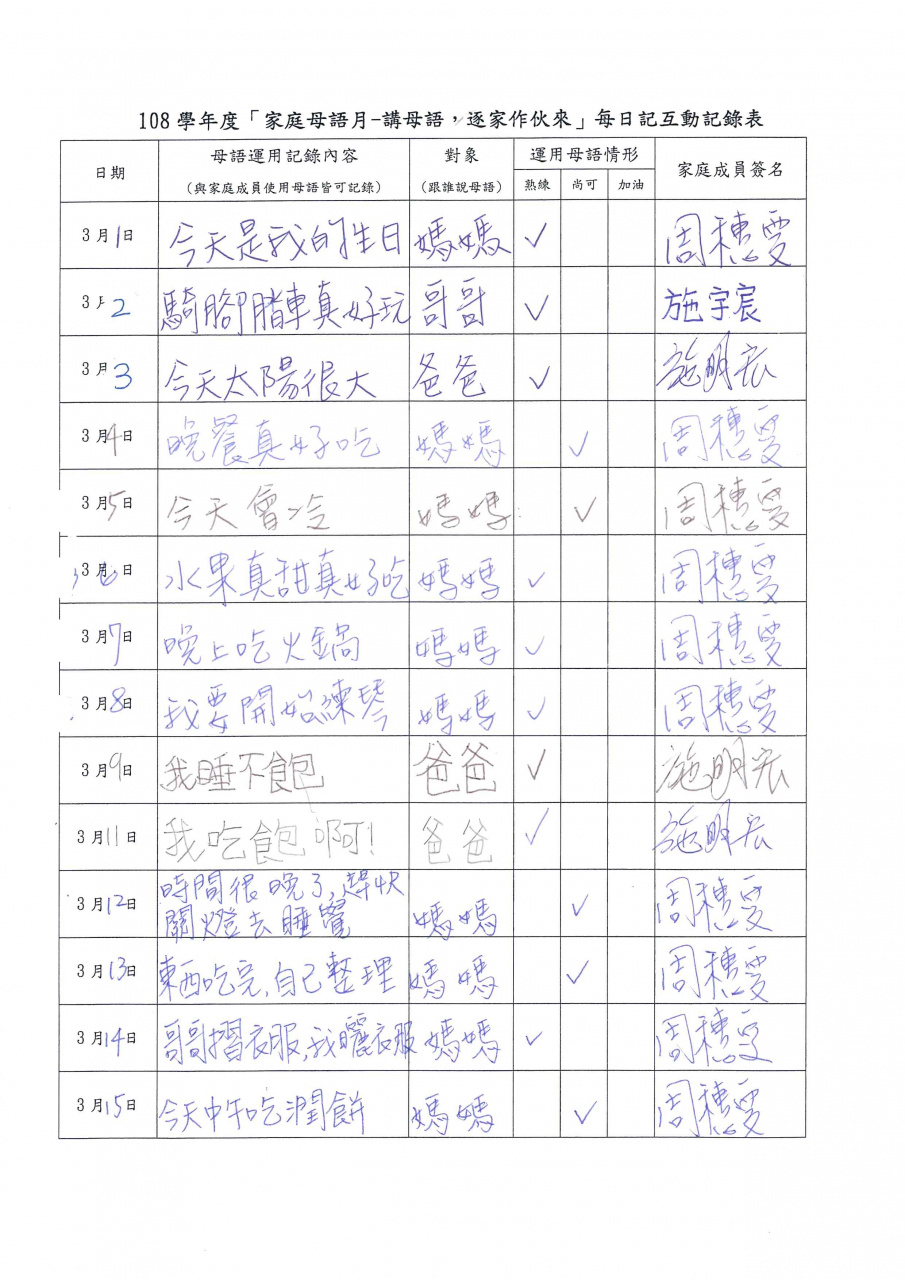 108 學年度「家庭母語月-講母語，逐家作伙來」每日記互動記錄表
日期 母語運用記錄內容 對象 運用母語情形 家庭成員簽名
（與家庭成員使用母語皆可記錄） （跟誰說母語） 熟練 尚可 加油
3月1日 今天是我的生日 媽媽 ✓ 周穗雯
3月2 騎腳踏車真好玩 哥哥 ✓ 施宇宸
3月3 今天太陽很大 爸爸 ✓ 施明宏
3月4日 晚餐真好吃 媽媽 ✓ 周穗雯
3月5日 今天會冷 媽媽 ✓ 周穗雯
3月6日 水果真甜真好吃 媽媽 ✓ 周穗雯
3月7日 晚上吃火鍋 媽媽 ✓ 周穗雯
3月8日 我要開始練琴 媽媽 ✓ 周穗雯
3月9日 我睡不飽 爸爸 ✓ 施明宏
3月11日 我吃飽啊! 爸爸 ✓ 施明宏
3月12日 時間很晚了,趕快
關燈去睡覺 媽媽 ✓ 周穗雯
3月13日 東西吃完,自己整理 媽媽 ✓ 周穗雯
3月14日 哥哥摺衣服,我曬衣服 媽媽 ✓ 周穗雯
3月15日 今天中午吃潤餅 媽媽 ✓ 周穗雯